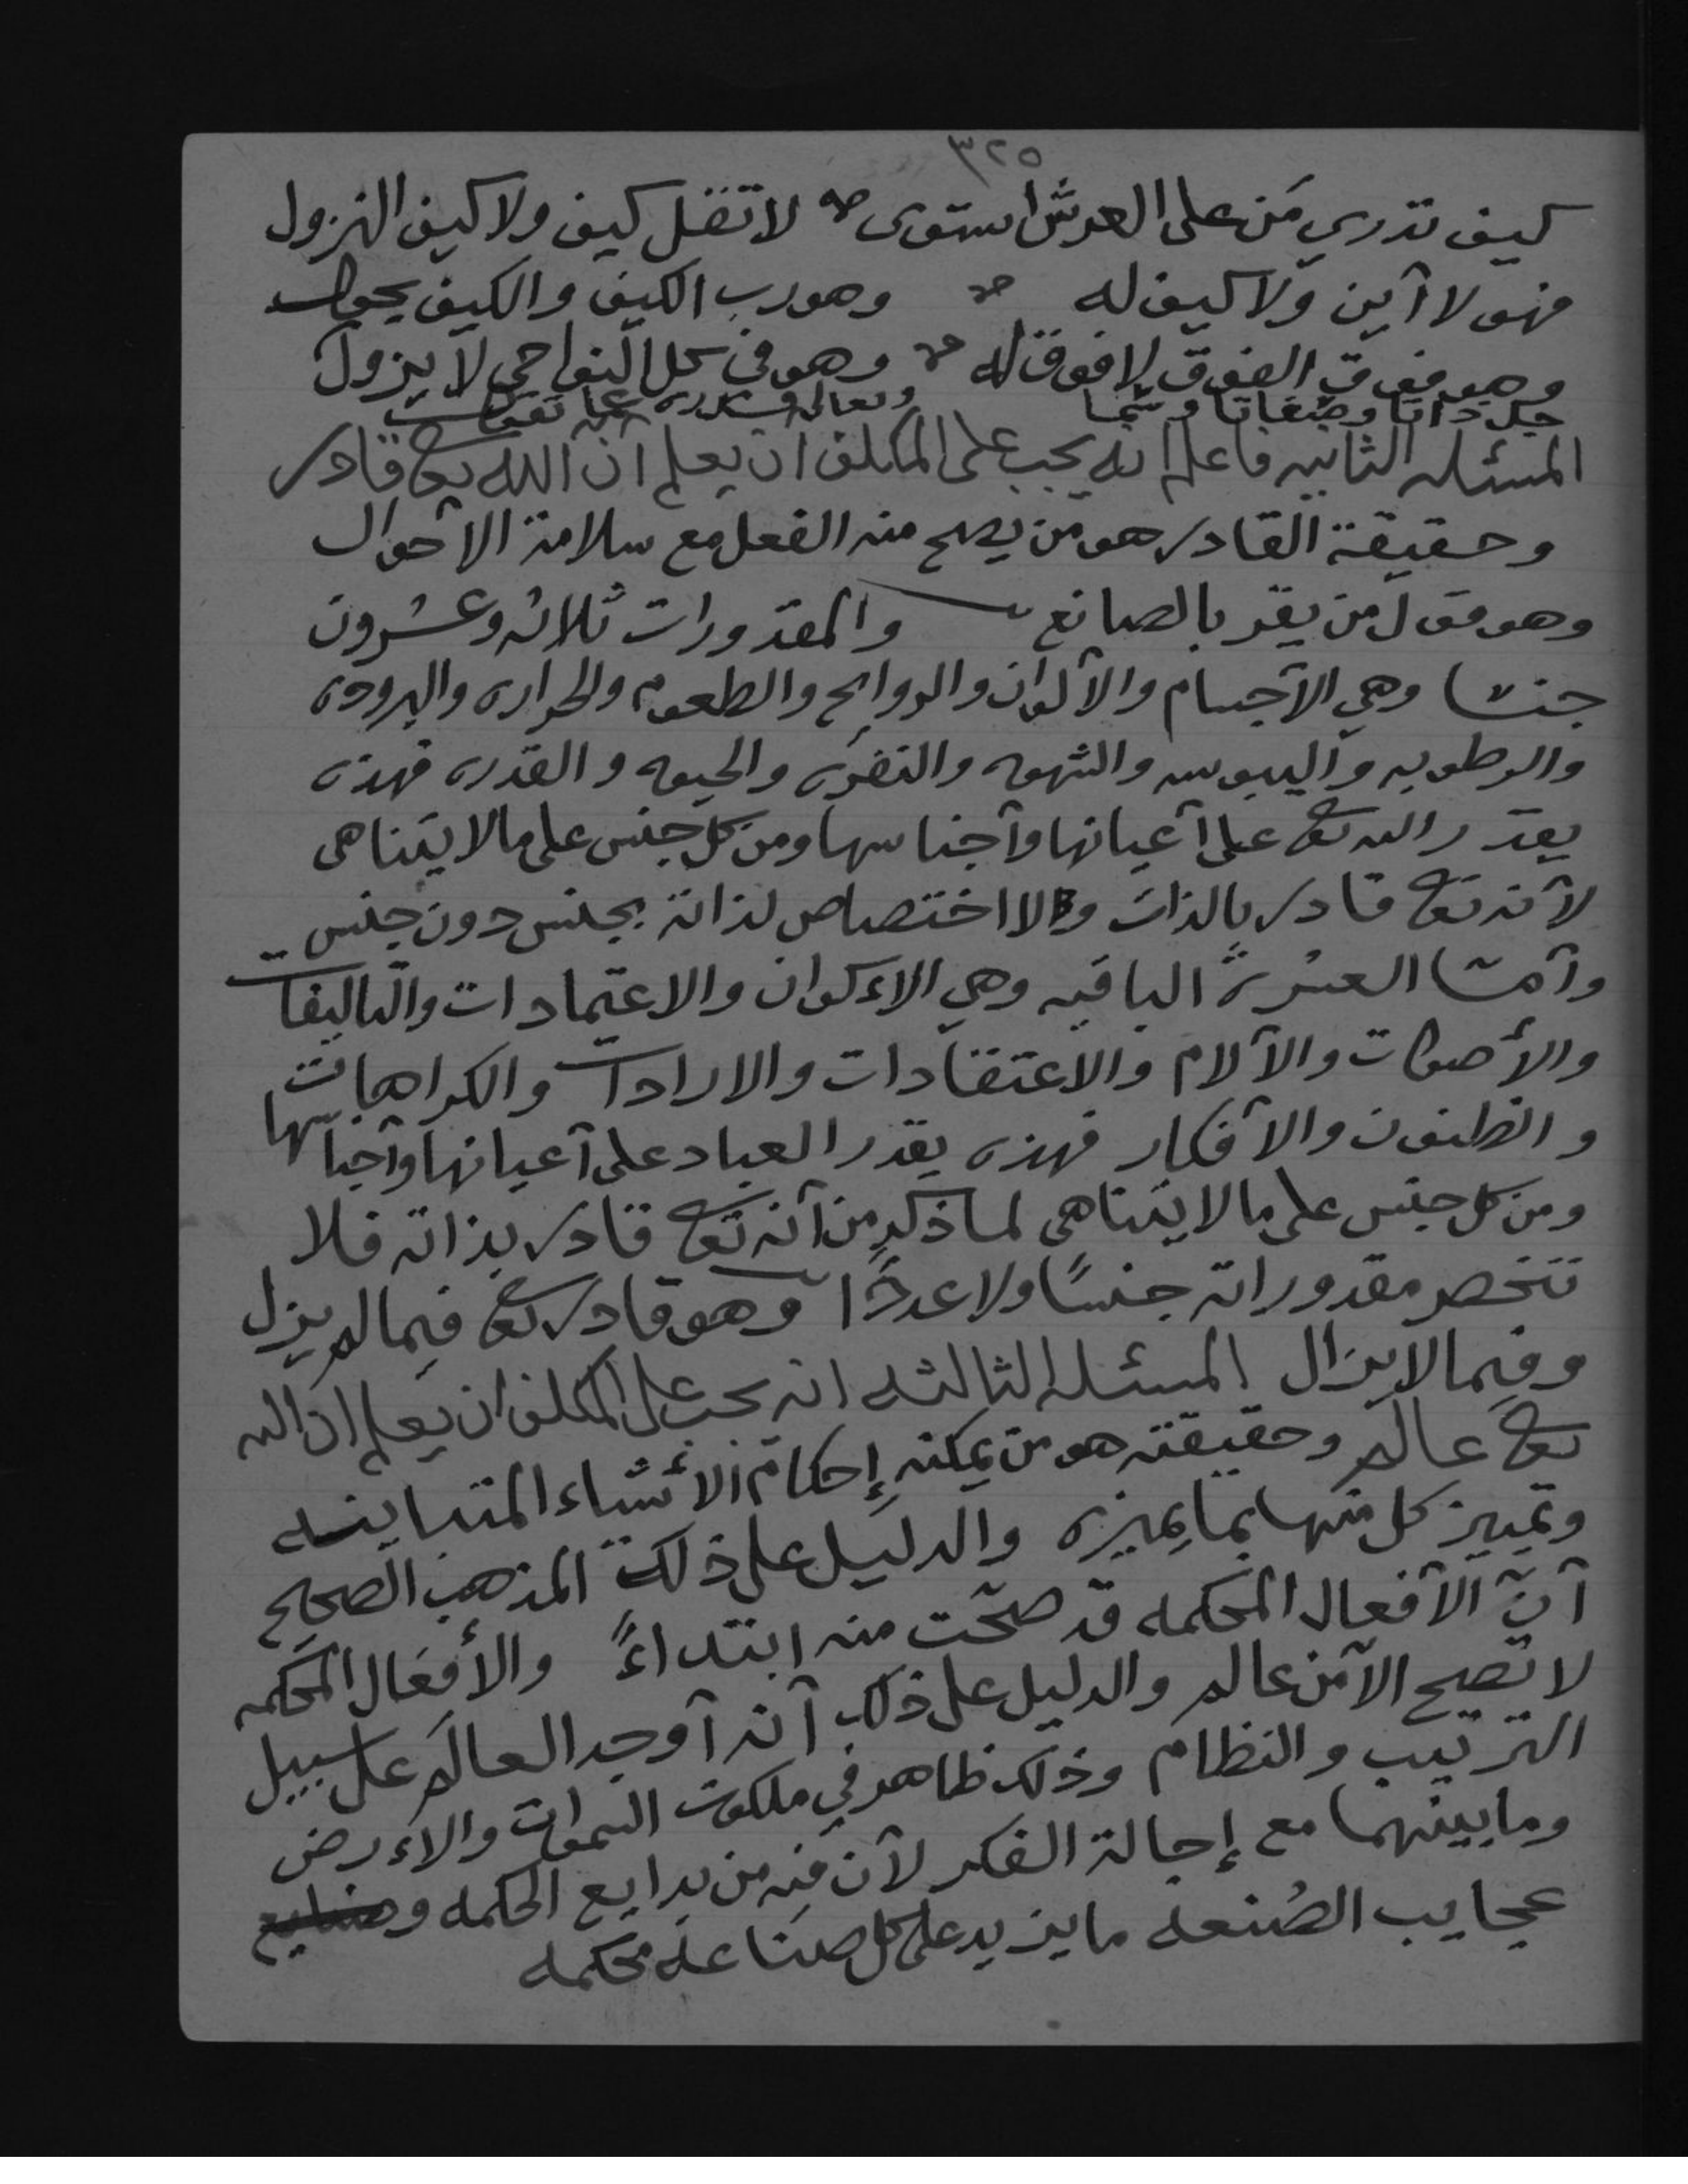 ٣٢٥
كيف تدري مَن على العرش استوى لا تقل كيف ولا كيف النزول
فهو لا أين ولا كيف له وهو رب الكيف والكيف يحول
وهو فوق الفوق لا فوق له وهو في كل النواحي لا يزول
جل ذاتا وصفاتا وسما وتعالى قدره عما تقول
المسئله الثانيه فاعلم انه يجب على المكلف ان يعلم أن الله تع قادر
وحقيقة القادر هو من يصح منه الفعل مع سلامة الأحوال
وهو قول من يقر بالصانع والمقدورات ثلاثه وعشرون
جنسا وهي الأجسام والألوان والروايح والطعوم والحراره والبروده
والرطوبه واليبوسه والشهوه والنفره والحيوه والقدره فهذه
يقدر الله تع على أعيانها وأجناسها ومن كل جنس على ما لا يتناهى
لأنه تع قادر بالذات ولا اختصاص لذاته بجنس دون جنس
وأما العشرة الباقيه وهي الاءكوان والاعتمادات والتاليفات
والأصوات والآلام والاعتقادات والارادات والكراهات
والظنون والأفكار فهذه يقدر العباد على أعيانها وأجناسها
ومن كل جنس على ما لا يتناهى لما ذكر من أنه تع قادر بذاته فلا
تنحصر مقدوراته جنسًا ولا عددًا وهو قادر تع فيما لم يزل
وفيما لا يزال المسئله الثالثه انه يجب على المكلف ان يعلم ان الله
تع عالم وحقيقته هو من يمكنه إحكام الأشياء المتباينه
وتمييز كل منها بما يميزه والدليل على ذلك المذهب الصحيح
أنّ الأفعال المحكمه قد صحّت منه ابتداءً والأفعال المحكمه
لا تصح الا من عالم والدليل على ذلك أنه أوجد العالم على سبيل
الترتيب والنظام وذلك ظاهر في ملكوت السموات والاءرض
وما بينهما مع إجالة الفكر لأن فيه من بدايع الحكمه وصنايع
عجايب الصُنعه ما يزيد على كل صناعه محكمه